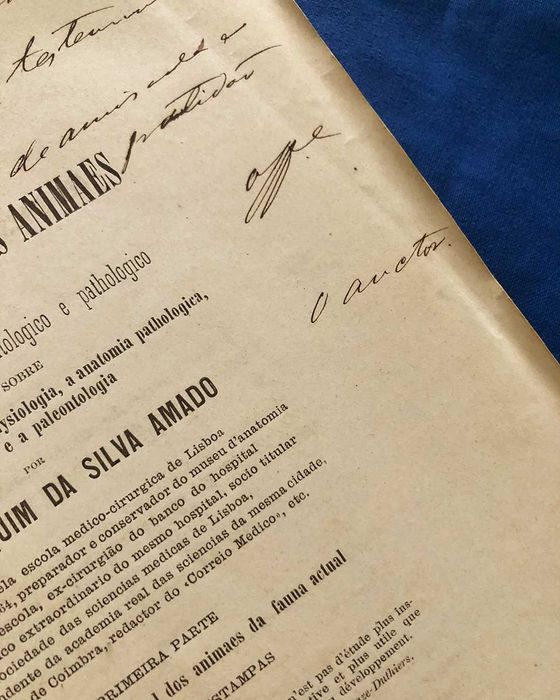 testemu
de amisade e
gratidão
offe
O auctor.
S ANIMAES
tologico e pathologico
SOBRE
hysiologia, a anatomia pathologica,
e a paleontologia
POR
QUIM DA SILVA AMADO
ela escola medico-cirurgica de Lisboa
64, preparador e conservador do museu d'anatomia
escola, ex-cirurgião do banco do hospital
ico extraordinario do mesmo hospital, socio titular
sociedade das sciencias medicas de Lisboa,
ndente da academia real das sciencias da mesma cidade,
de Coimbra, redactor do «Correio Medico», etc.
PRIMEIRA PARTE
al dos animaes da fauna actual
STAMPAS
n'est pas d'étude plus ins-
ctive et plus utile que
développement.
Duthiers.